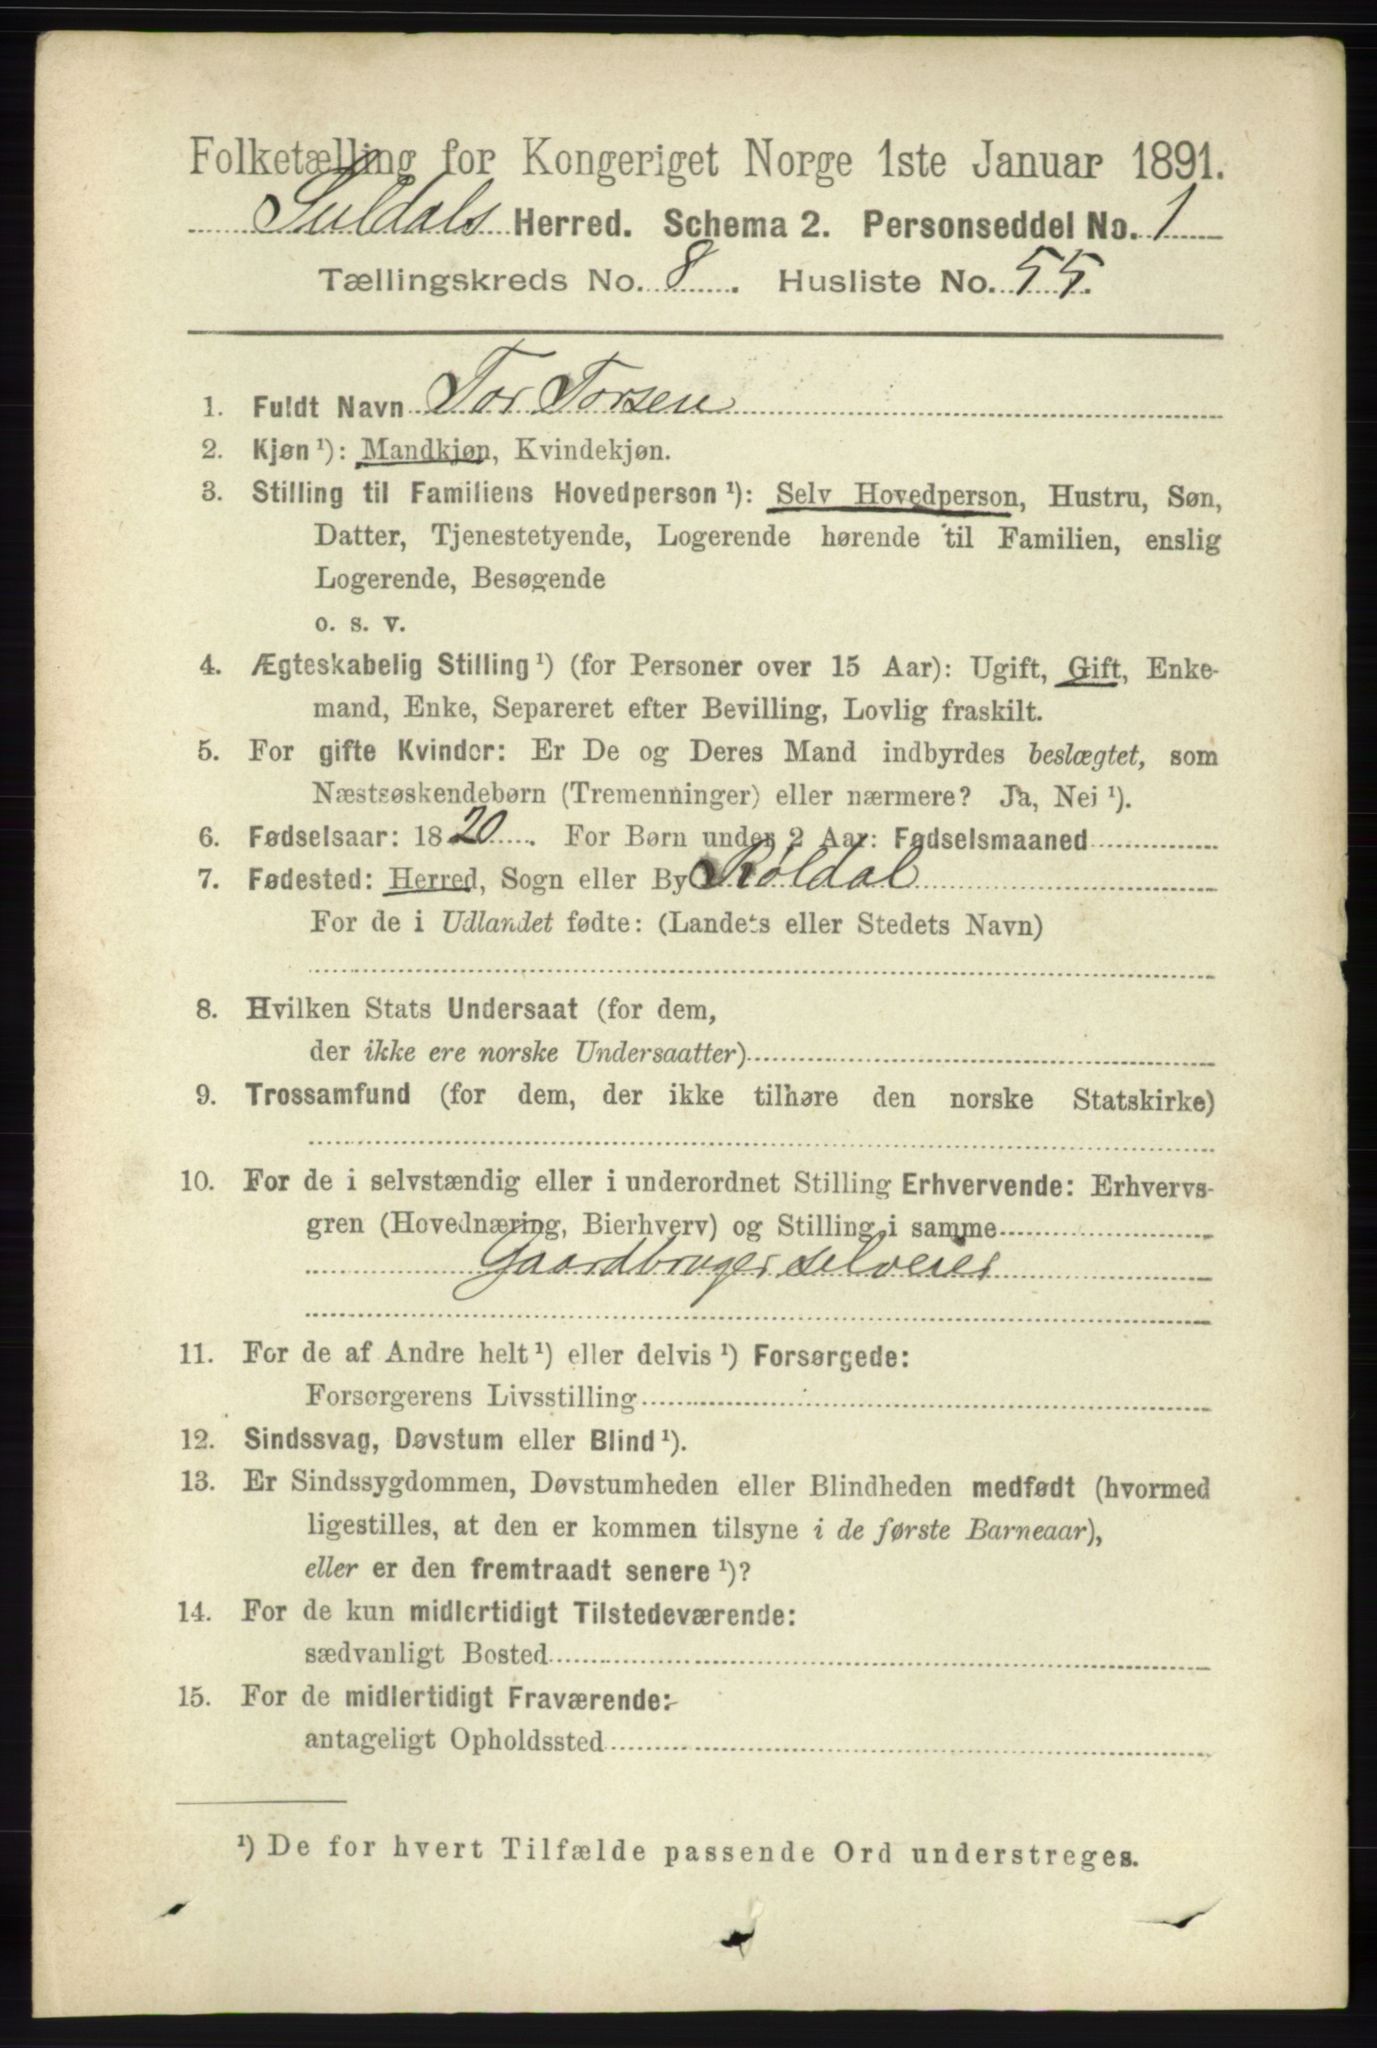 Folketælling for Kongeriget Norge 1ste Januar 1891.
Suldals Herred. Schema 2. Personseddel No. 1
Tællingskreds No. 8. Husliste No. 55.
1. Fuldt Navn Tor Torsen
2. Kjøn ¹): Mandkjøn, Kvindekjøn.
3. Stilling til Familiens Hovedperson ¹): Selv Hovedperson, Hustru, Søn,
Datter, Tjenestetyende, Logerende hørende til Familien, enslig
Logerende, Besøgende
o. s. v.
4. Ægteskabelig Stilling ¹) (for Personer over 15 Aar): Ugift, Gift, Enke-
mand, Enke, Separeret efter Bevilling, Lovlig fraskilt.
5. For gifte Kvinder: Er De og Deres Mand indbyrdes beslægtet, som
Næstsøskendebørn (Tremenninger) eller nærmere? Ja, Nei ¹).
6. Fødselsaar: 1820. For Børn under 2 Aar: Fødselsmaaned
7. Fødested: Herred, Sogn eller By Røldal
For de i Udlandet fødte: (Landets eller Stedets Navn)
8. Hvilken Stats Undersaat (for dem,
der ikke ere norske Undersaatter)
9. Trossamfund (for dem, der ikke tilhøre den norske Statskirke)
10. For de i selvstændig eller i underordnet Stilling Erhvervende: Erhvervs-
gren (Hovednæring, Bierhverv) og Stilling i samme
Gaardbruger selveier
11. For de af Andre helt ¹) eller delvis ¹) Forsørgede:
Forsørgerens Livsstilling
12. Sindssvag, Døvstum eller Blind ¹).
13. Er Sindssygdommen, Døvstumheden eller Blindheden medfødt (hvormed
ligestilles, at den er kommen tilsyne i de første Barneaar),
eller er den fremtraadt senere ¹)?
14. For de kun midlertidigt Tilstedeværende:
sædvanligt Bosted
15. For de midlertidigt Fraværende:
antageligt Opholdssted
¹) De for hvert Tilfælde passende Ord understreges.